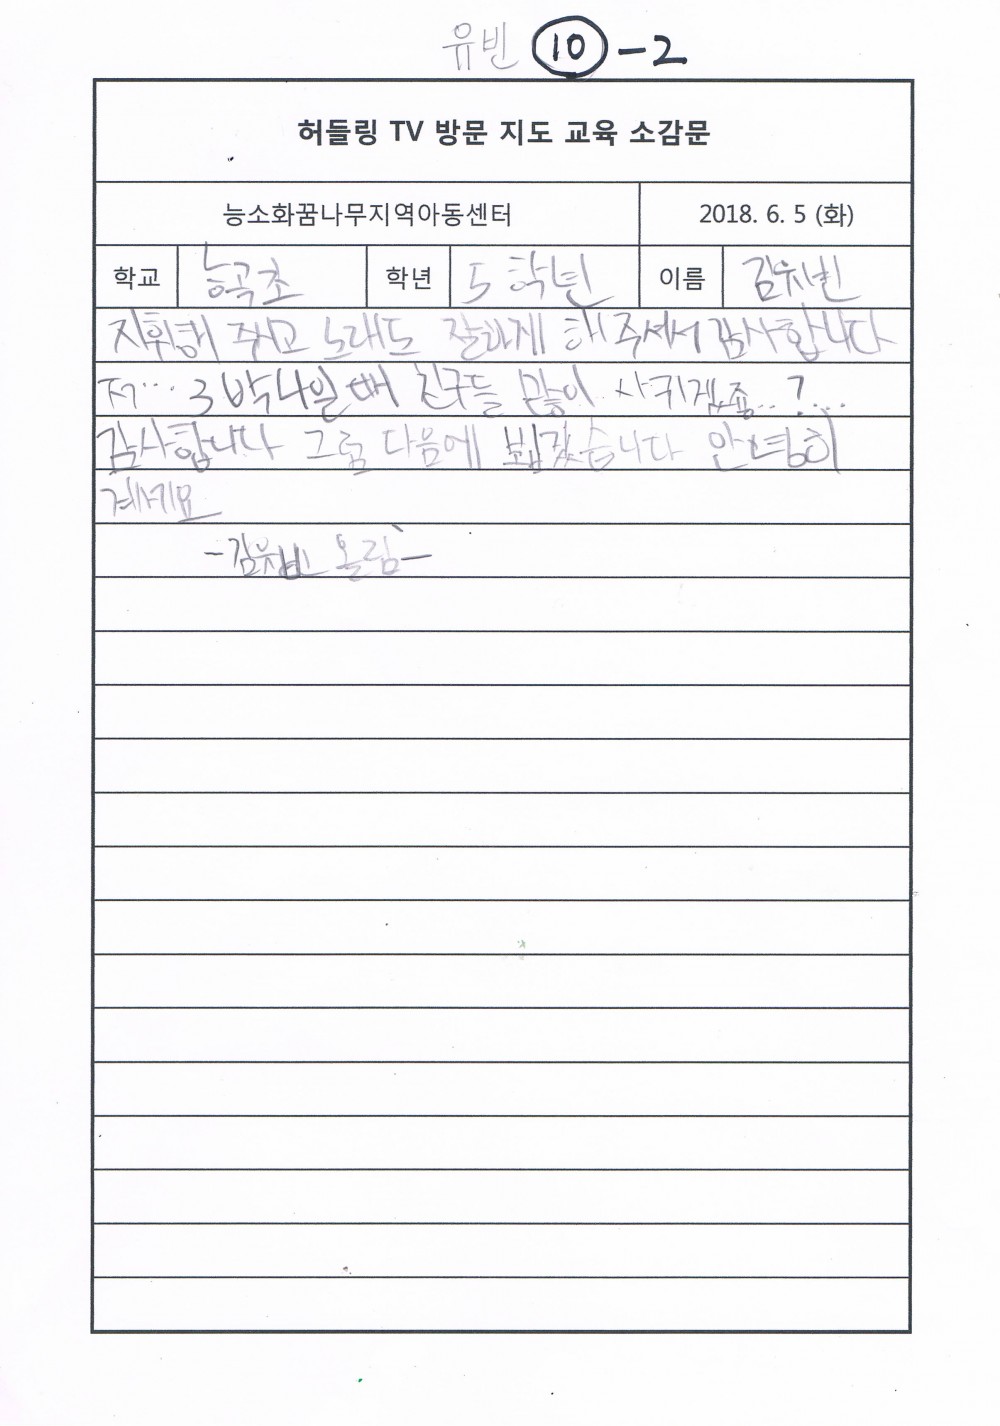 유빈 10-2
허들링 TV 방문 지도 교육 소감문
능소화꿈나무지역아동센터 2018. 6. 5 (화)
학교 능곡초 학년 5학년 이름 김유빈
지휘해 주시고 노래도 잘하게 해주셔서 감사합니다
저... 3박4일때 친구들 많이 사귀겠죠..?...
감사합니다 그럼 다음에 뵙겠습니다 안녕히
계세요
-김유빈 올림-